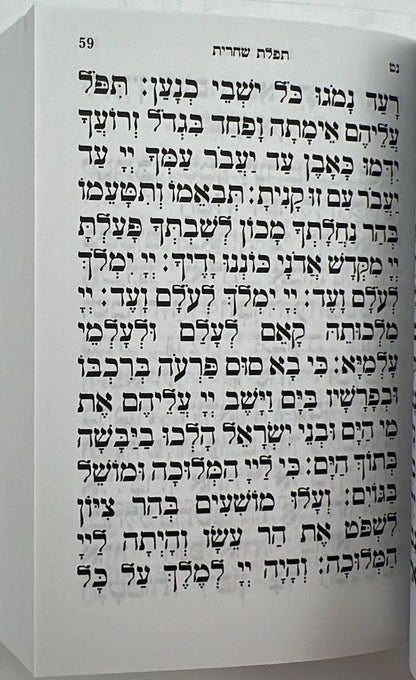 59 תפלת שחרית נט
רָעַד נָמֹגוּ כֹּל יֹשְׁבֵי כְנָעַן: תִּפֹּל
עֲלֵיהֶם אֵימָתָה וָפַחַד בִּגְדֹל זְרוֹעֲךָ
יִדְּמוּ כָּאָבֶן עַד יַעֲבֹר עַמְּךָ יְיָ עַד
יַעֲבֹר עַם זוּ קָנִיתָ: תְּבִאֵמוֹ וְתִטָּעֵמוֹ
בְּהַר נַחֲלָתְךָ מָכוֹן לְשִׁבְתְּךָ פָּעַלְתָּ
יְיָ מִקְּדָשׁ אֲדֹנָי כּוֹנְנוּ יָדֶיךָ: יְיָ יִמְלֹךְ
לְעֹלָם וָעֶד: יְיָ יִמְלֹךְ לְעֹלָם וָעֶד: יְיָ
מַלְכוּתֵהּ קָאֵם לְעָלַם וּלְעָלְמֵי
עָלְמַיָּא: כִּי בָא סוּס פַּרְעֹה בְּרִכְבּוֹ
וּבְפָרָשָׁיו בַּיָּם וַיָּשֶׁב יְיָ עֲלֵיהֶם אֶת
מֵי הַיָּם וּבְנֵי יִשְׂרָאֵל הָלְכוּ בַיַּבָּשָׁה
בְּתוֹךְ הַיָּם: כִּי לַיְיָ הַמְּלוּכָה וּמוֹשֵׁל
בַּגּוֹיִם: וְעָלוּ מוֹשִׁעִים בְּהַר צִיּוֹן
לִשְׁפֹּט אֶת הַר עֵשָׂו וְהָיְתָה לַיְיָ
הַמְּלוּכָה: וְהָיָה יְיָ לְמֶלֶךְ עַל כָּל